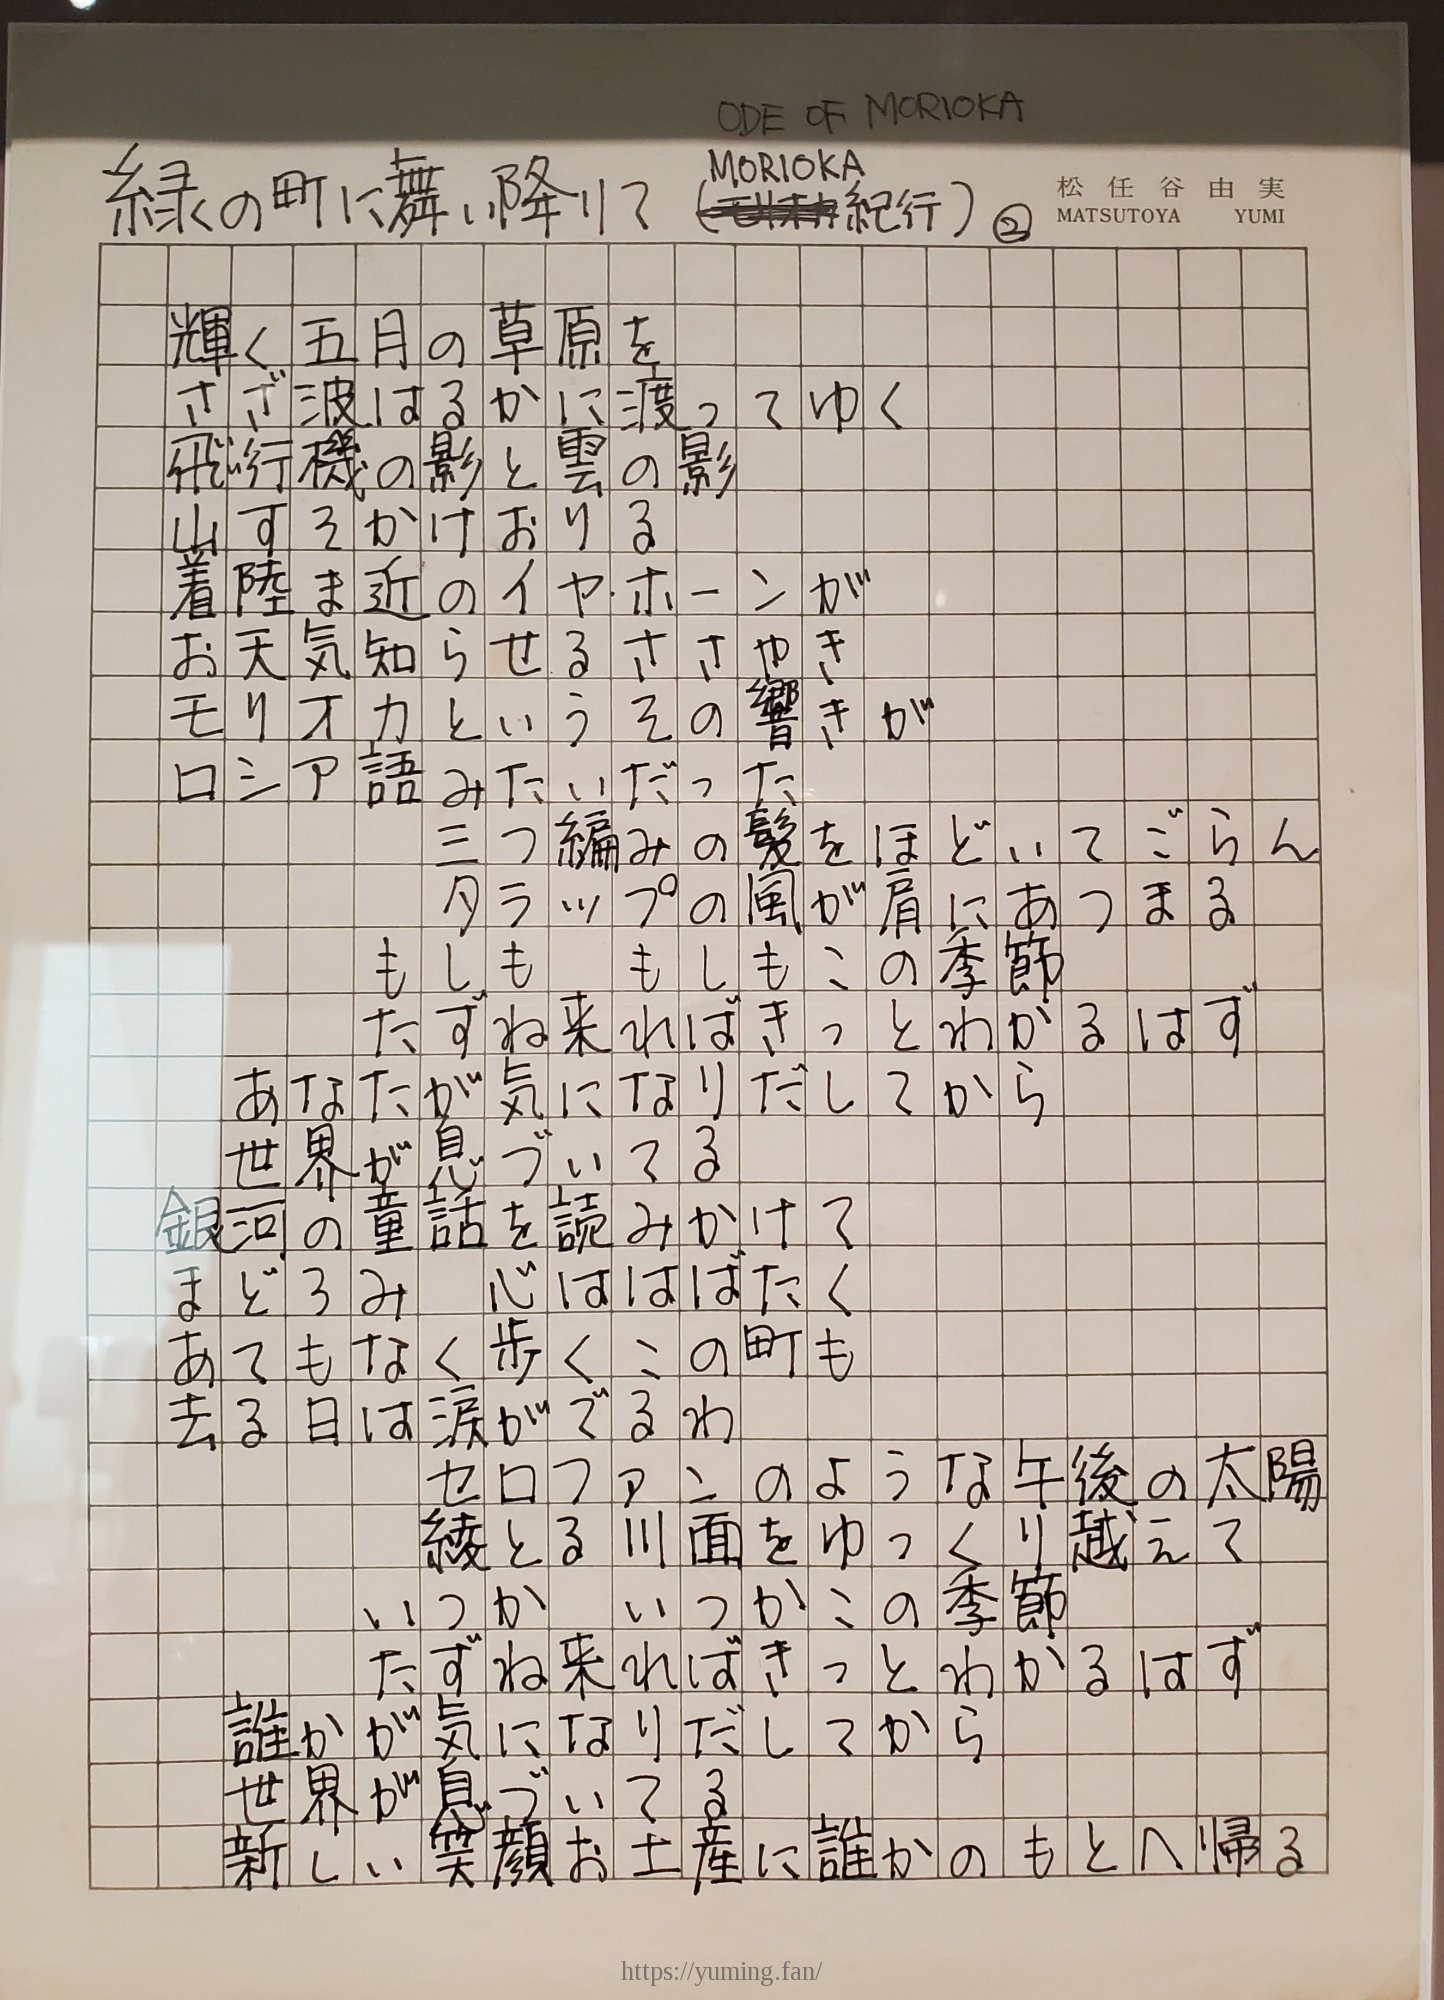 ODE OF MORIOKA
MORIOKA
緑の町に舞い降りて (紀行) ②
松任谷由実
MATSUTOYA YUMI
輝く五月の草原を
さざ波はるかに渡ってゆく
飛行機の影と雲の影
山すそかけおりる
着陸ま近のイヤホーンが
お天気知らせるささやき
モリオカというその響きが
ロシア語みたいだった
三つ編みの髪をほどいてごらん
タラップの風が肩にあつまる
もしも もしもこの季節
たずね来ればきっとわかるはず
あなたが気になりだしてから
世界が息づいてる
銀河の童話を読みかけて
まどろみ 心ははばたく
あてもなく歩くこの町も
去る日は涙がでるわ
セロファンのような午後の太陽
綾とる川面をゆっくり越えて
いつか いつかこの季節
たずね来ればきっとわかるはず
誰かが気になりだしてから
世界が息づいてる
新しい笑顔お土産に誰かのもとへ帰る
https://yuming.fan/